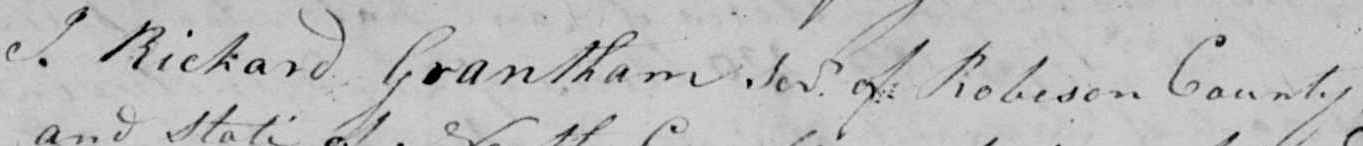 I Rickard Grantham Ser. of Robeson County
and State of North